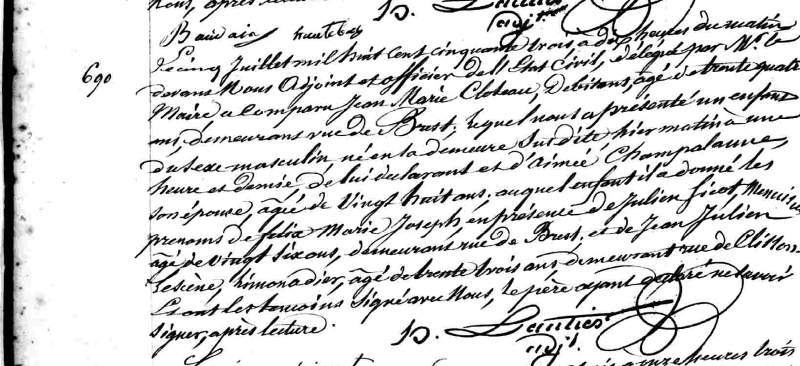 P. Lauties
adjt.
690
Le cinq Juillet mil huit cent cinquante trois à dix heures du matin
devant Nous Adjoint et officier de l'Etat Civil, délégué par Mr. le
Maire a comparu Jean Marie Cloteau, Debitant, agé de trente quatre
ans, demeurant rue de Brest; lequel nous a présenté un enfant
du sexe masculin né en la demeure Susdite, hier matin à une
heure et demie, de lui déclarant et d'Aimée Champalaune,
son épouse, agée de Vingt huit ans, auquel enfant il a donné les
prenoms de felix Marie Joseph, en présence de Julien Sicot, Menuisier
agé de Vingt Six ans, demeurant rue de Brest, et de Jean Julien
Lesène, Limonadier, agé de trente trois ans demeurant rue de Clisson
Et ont les temoins Signé avec Nous, le père ayant déclaré ne savoir
signer, après lecture.
P. Lauties
adjt.
heures trois